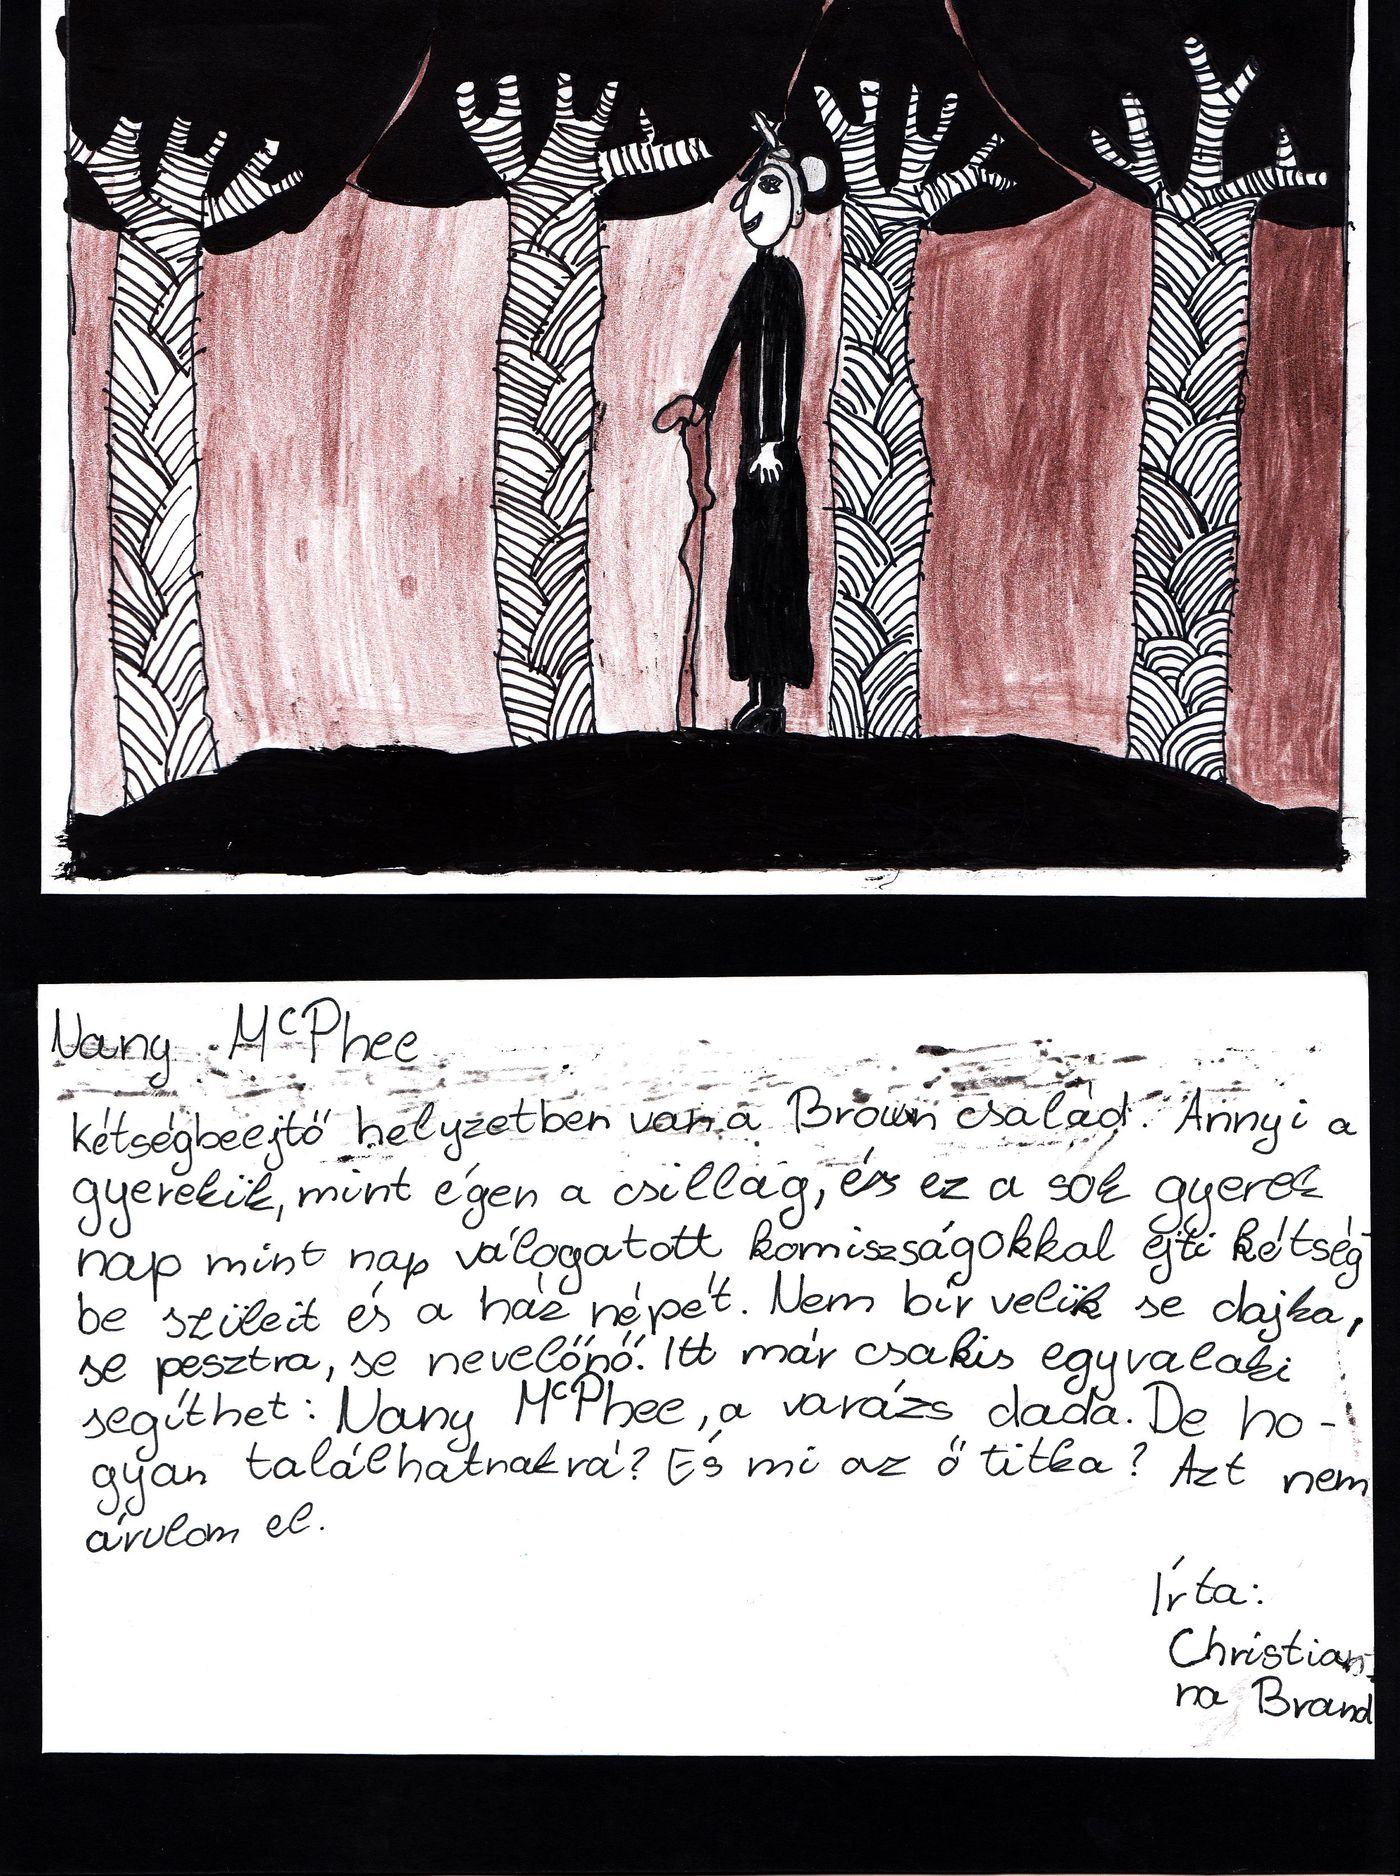 Nany McPhee
kétségbeejtő helyzetben van a Brown család. Annyi a
gyerekük, mint égen a csillag, és ez a sok gyerek
nap mint nap válogatott komiszságokkal ejti kétség
be szüleit és a ház népét. Nem bír velük se dajka,
se pesztra, se nevelőnő. Itt már csakis egyvalaki
segíthet: Nany McPhee, a varázs dada. De ho-
gyan találhatnak rá? És mi az ő titka? Azt nem
árulom el.
Írta:
Christian-
na Brand